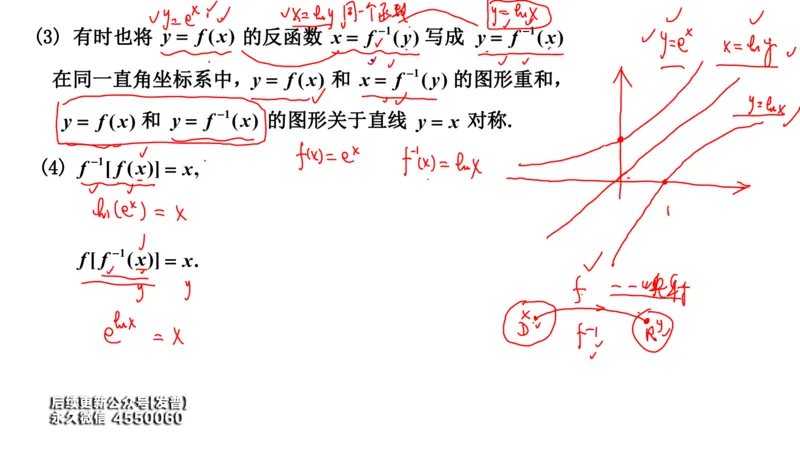 y=eˣ x=ln y 同一个函数 y=ln x
(3) 有时也将 y = f(x) 的反函数 x = f⁻¹(y) 写成 y = f⁻¹(x)
y=eˣ x=ln y
在同一直角坐标系中，y = f(x) 和 x = f⁻¹(y) 的图形重和，
y=ln x
y = f(x) 和 y = f⁻¹(x) 的图形关于直线 y = x 对称.
f(x)=eˣ f⁻¹(x)=ln x
(4) f⁻¹[f(x)] = x,
ln(eˣ) = x
1
f[f⁻¹(x)] = x.
y y
f
x y
D R
f⁻¹
e^{ln x} = x
后续更新公众号[发普]
永久微信 4550060